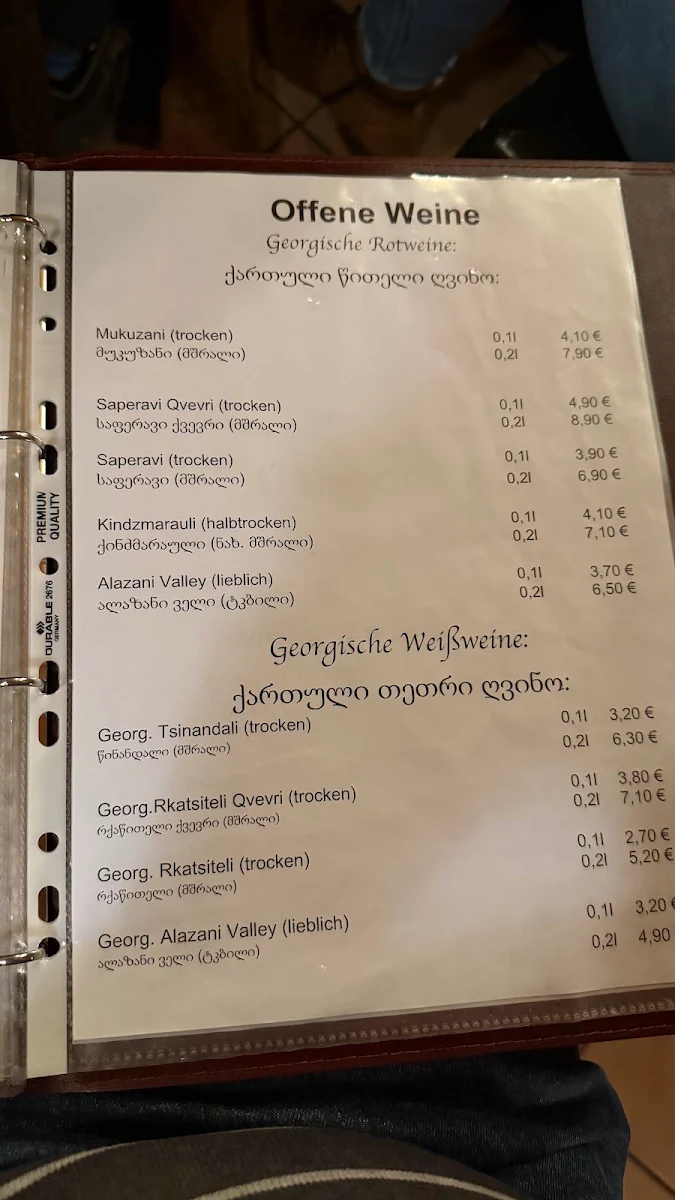 Offene Weine
Georgische Rotweine:
ქართული წითელი ღვინო:
Mukuzani (trocken) 0,1l 4,10 €
მუკუზანი (მშრალი) 0,2l 7,90 €
Saperavi Qvevri (trocken) 0,1l 4,90 €
საფერავი ქვევრი (მშრალი) 0,2l 8,90 €
Saperavi (trocken) 0,1l 3,90 €
საფერავი (მშრალი) 0,2l 6,90 €
Kindzmarauli (halbtrocken) 0,1l 4,10 €
ქინძმარაული (ნახ. მშრალი) 0,2l 7,10 €
Alazani Valley (lieblich) 0,1l 3,70 €
ალაზანი ველი (ტკბილი) 0,2l 6,50 €
Georgische Weißweine:
ქართული თეთრი ღვინო:
Georg. Tsinandali (trocken) 0,1l 3,20 €
წინანდალი (მშრალი) 0,2l 6,30 €
Georg.Rkatsiteli Qvevri (trocken) 0,1l 3,80 €
რქაწითელი ქვევრი (მშრალი) 0,2l 7,10 €
Georg. Rkatsiteli (trocken) 0,1l 2,70 €
რქაწითელი (მშრალი) 0,2l 5,20 €
Georg. Alazani Valley (lieblich) 0,1l 3,20 €
ალაზანი ველი (ტკბილი) 0,2l 4,90
PREMIUM
QUALITY
DURABLE 2676
GERMANY